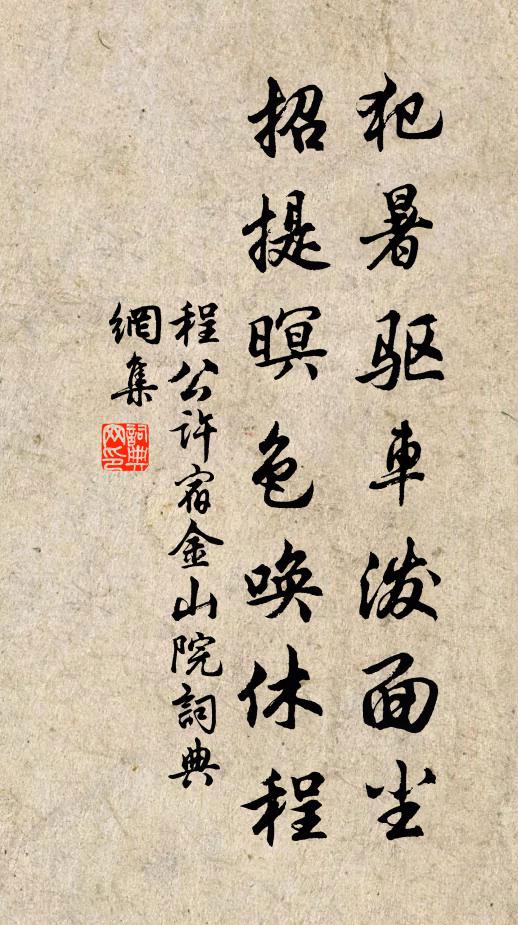 犯暑驱車泼面尘
招提暝色唤休程
程公许宿金山院詞典
網集
詞典
网印